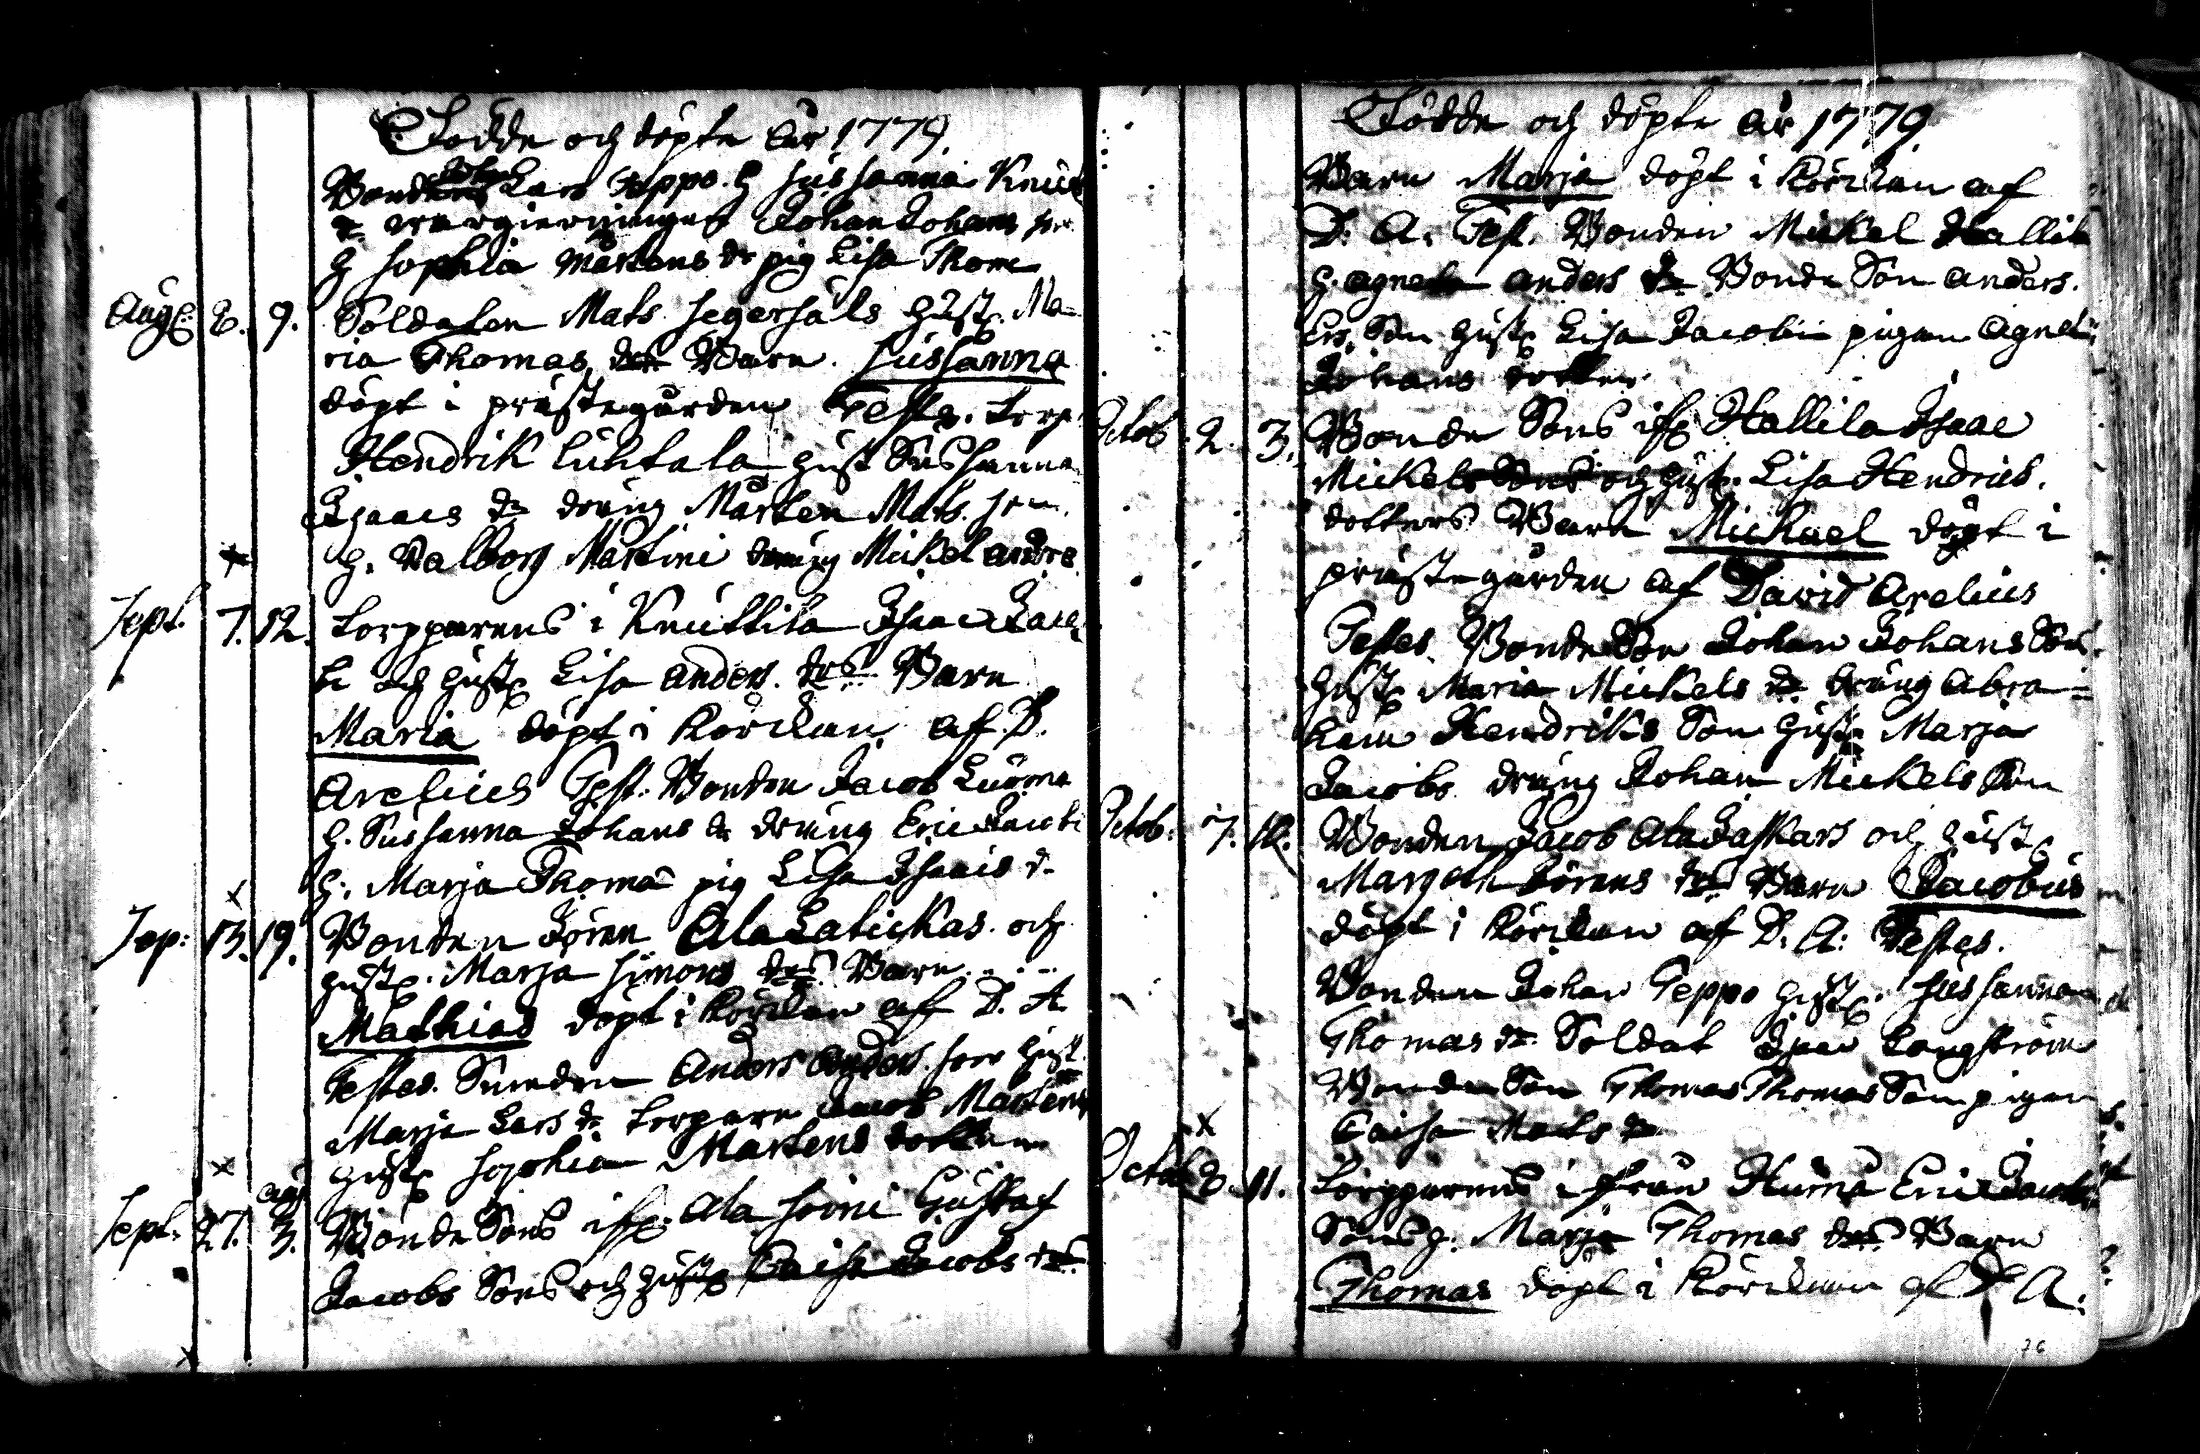 Födde och döpte år 1779.
Bonden Johan Lars Teppo. h Sussanna Knuts
dr Johan Johans son
h Sophia Mårtens dr pig Lisa Thom
Aug. 8. 9. Soldaten Mats Segersäls hust. Ma=
ria Thomas drs Barn. Sussanna
döpt i prästegården Testes. torp.
Hendrik Luhtala hust Sussanna
Isaacs dr dräng Mårten Mats son
h. Valborg Martini dräng Mickel Andre
Sept. 7. 12. Torpparens i Knuttila Isaac Jaco
bi och hust. Lisa Anders. drs Barn
Maria döpt i Körckan af D.
Arelius Test. Bonden Jacob Luoma
h. Sussanna Johans dr dräng Eric Jacobi
h. Marja Thomæ pig Lisa Isaacs d.
Sep: 13. 19. Bonden Jören Ala Latickas och
hust. Marja Simons drs Barn
Mathias döpt i Körckan af D. A.
Testes. Anders Anders son hust
Marja Lars dr torpare Jacob Mårtens
hust Sophia Mårtens dotter
Sept. 27. aug 3. Bonde Sons ifr. Ala Soini Gustaf
Jacobs Sons och hust Caisa Jacobs drs
Födde och döpte år 1779
Barn Marja döpt i Körckan af
D. A. Test. Bonden Mickel Hallila
h. Agneta Anders dr Bonde Son Anders.
Ers. Son hust Lisa Jacobi pigan Agneta
Johans dotter
Octob. 2. 3. Bonde Sons ifr Hallila Isaac
Mickels Sons och hust. Lisa Hendricks.
dotters Barn Michael döpt i
prästegården af David Arelius
Testes. Bonde Son Johan Johans Son.
hust Maria Mickels dr dräng Abra=
ham Hendriks Son hust Marja
Jacobs dräng Johan Mickels Son
Octob: 7. 10. Bonden Jacob Ala Jaskars och hust
Margeth Jörens drs Barn Jacobus
döpt i Körckan af D. A: Testes.
Bonden Johan Teppo hust. Sussanna
Thomas dr Soldat Isaac Langström
Bonde Son Thomas Thomas Son pigan
Caisa Mats dr
Octob 8. 11. Torpparens ifrån Huma Eric Jacobs
Sons h. Marja Thomas drs Barn
Thomas döpt i Körckan af D A.
76